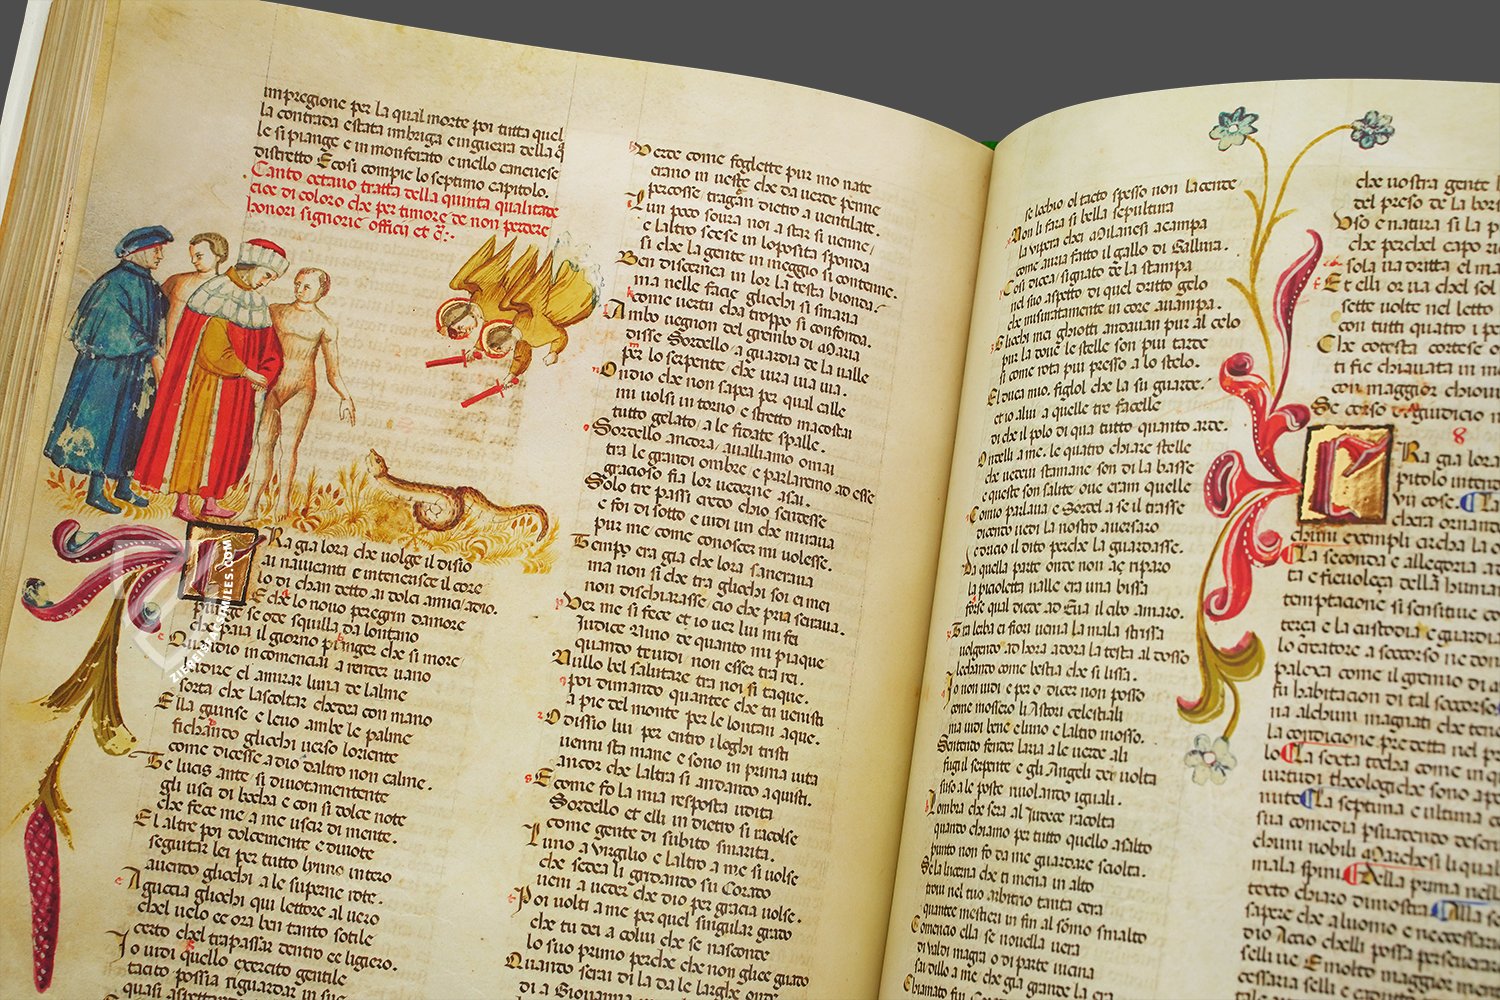 impregione per la qual morte poi tutta quel
la contrada e stata imbriga e inguerra della q̃l
le si piange e in monferato e inello caneuese
distretto E cosi compie lo septimo capitolo.
Canto octauo tratta della quinta qualitate
cioe di coloro che per timore de non perdere
honori signorie officii et c̃:·
Ra gia lora che volge il disio
ai nauicanti e intenerisce il core
lo di chan detto ai dolci amici adio.
E che lo nouo peregrin damore
punge se ode squilla da lontano
che paia il giorno pianger che si more
Quandio incomenciai a render uano
ludire el amirar luna de lalme
sorta che lascoltar chedea con mano
Ella giunse e leuo ambe le palme
fichando gliocchi uerso loriente
come dicesse a dio daltro non calme.
Te lucis ante si diuotamentente
gli usci di bocha e con si dolce note
che fece me a me uscir di mente.
El altre poi dolcemente e diuote
seguitar lei per tutto lynno intero
auendo gliocchi a le superne rote.
Aguccia gliocchi qui lettore al uero
chel uelo ee ora ben tanto sotile
certo chel trapassar dentro ee ligiero.
Io uidi quello exercito gentile
tacito possia riguardar in sue
quasi aspettan
Verde come foglette pur mo nate
erano in ueste che da uerde penne
percosse tragan dietro a uentilate.
Lun poco soura noi a star si uenne
e laltro scese in loposita sponda
si che la gente in meggio si contenne.
Ben discernea in lor la testa bionda
ma nelle facie gliocchi si smaria
come uertu cha troppo si confonda.
Ambo uegnon del grembo di Maria
disse Sordello a guardia de la ualle
per lo serpente che uira uia uia.
Ondio che non sapea per qual calle
mi uolsi in torno e stretto macostai
tutto gelato a le fidate spalle.
Sordello ancora aualliamo omai
tra le grandi ombre e parlaremo ad esse
gracioso fia lor uederne asai.
Solo tre passi credo chio sendesse
e foi di sotto e uidi un che miraua
pur me come conoscer mi uolesse.
Tempo era gia che lora saneraua
ma non si che tra gliocchi soi ei mei
non dischiarasse cio che pria seraua.
Ver me si fece et io uer lui mi fei
Iudice nino de quanto mi piaque
quando teuidi non esser tra rei.
Nullo bel salutare tra noi si taque.
poi dimando quantee che tu uenisti
a pie del monte per le lontani aque.
O dissio lui per entro i loghi tristi
uenni sta mane e sono in prima uita
ancor che laltra si andando aquisti.
E come fo la mia resposta udita
Sordello et elli in dietro si racolse
come gente di subito smarita.
Luno a Virgilio e laltro a me si uolse
che sedea li gridando su Corado
ueni a ueder che dio per gracia uolse.
Poi uolti a me per quel singular grado
che tu dei a colui che se nasconde
lo suo primo perche che non gliee guado
Quando serai di la da le larghe onde
di a Giouanna
se lochio ol tacto spesso non lacende
Non li fara si bella sepultura
la uipera chei Milanesi acampa
come auria fatto il gallo di Gallura.
Cosi dicea signato de la stampa
nel suo aspetto di quel dritto gelo
che misuratamente in core auampa.
Gliocchi mei ghiotti andauan pur al celo
pur la doue le stelle son piu tarde
si come rota piu presso a lo stelo.
El duca mio, figlol che la su guarde.
et io alui a quelle tre facelle
di che il polo di qua tutto quanto arde.
Ondelli a me. le quatro chiare stelle
che uedeui stamane son di la basse
e queste son salite oue eram quelle
Comio parlaua e Sordel a se il trasse
dicendo uedi la nostro auersaro
e dricio il dito perche la guardasse.
Da quella parte onde non aç riparo
la piccioletta ualle era una bissa
forse qual diede ad Eua il cibo amaro.
Tra lerba ei fiori uenia la mala strissa
uolgendo ad hora adora la testa al dosso
lecchando come bestia che si lissa.
Io non uidi e per o dicer non posso
come mossero li Astori celestiali
ma uidi bene e luno e laltro mosso.
Sentendo fender laria a le uerde ali
fugiil serpente e gli Angeli der uolta
suso a le poste riuolando iguali.
Lombra che sera al Iudece racolta
quando chiamo per tutto quello asalto
punto non fo da me guardare sciolta.
Se la lucerna che ti mena in alto
troui nel tuo arbitrio tanta cera
quantee mestieri in fin al sõmo smalto
Comencio ella se nouella uera
di ualdi magra o di parte uicina
sai dillo a me che gia grande la era
Chiamato fui
che uostra gente
del preso de la bors
Vso e natura si la p
che perchel capo ri
sola ua dritta el ma
Et elli or ua chel sol
sette uolte nel letto
con tutti quatro i pe
Che cotesta cortese o
ti fie chiauata in m
con maggior chioui
Se corso de iudicio n
8
Ra gia lora
pitolo intend
VII cose. La
chera ornand
chuni exempli circha la c
La seconda e allegoria a
ta e fieuoleça della human
temptacione si sensitiue co
terça e la custodia e guardia
lo creatore a soccorso ne don
palexa come il gremio di a
fu habitacion di tal soccorso
na alchuni magnati che ten
la condicione predetta nel p
lo La sexta tocha come in q
uirtudi theologiche sono ap
nute La septima e ultima c
sua comedia psuadendo descri
chuni nobili Marchesi li qual
mala spini. Della prima nell
texto chiaro dimostra Alla se
sapere che aluomo e necessari
dio Accio chelli possa perseuerar
selli ue E molto maggior
cessaria
ZIEREIS FACSIMILES.COM